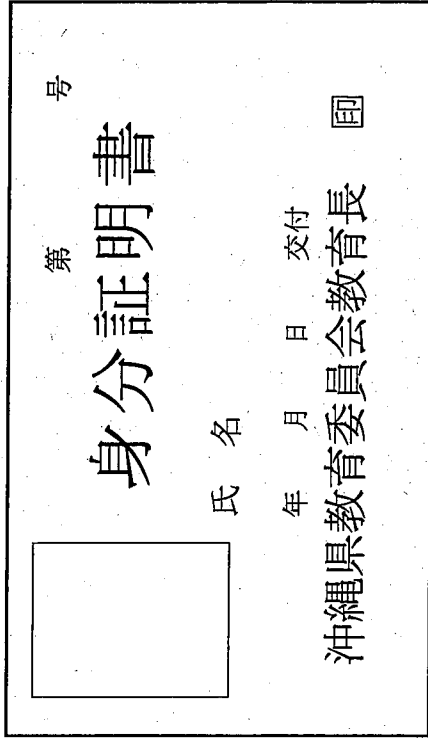 第　　　号
身分証明書
氏　名
年　月　日　交付
沖縄県教育委員会教育長　印